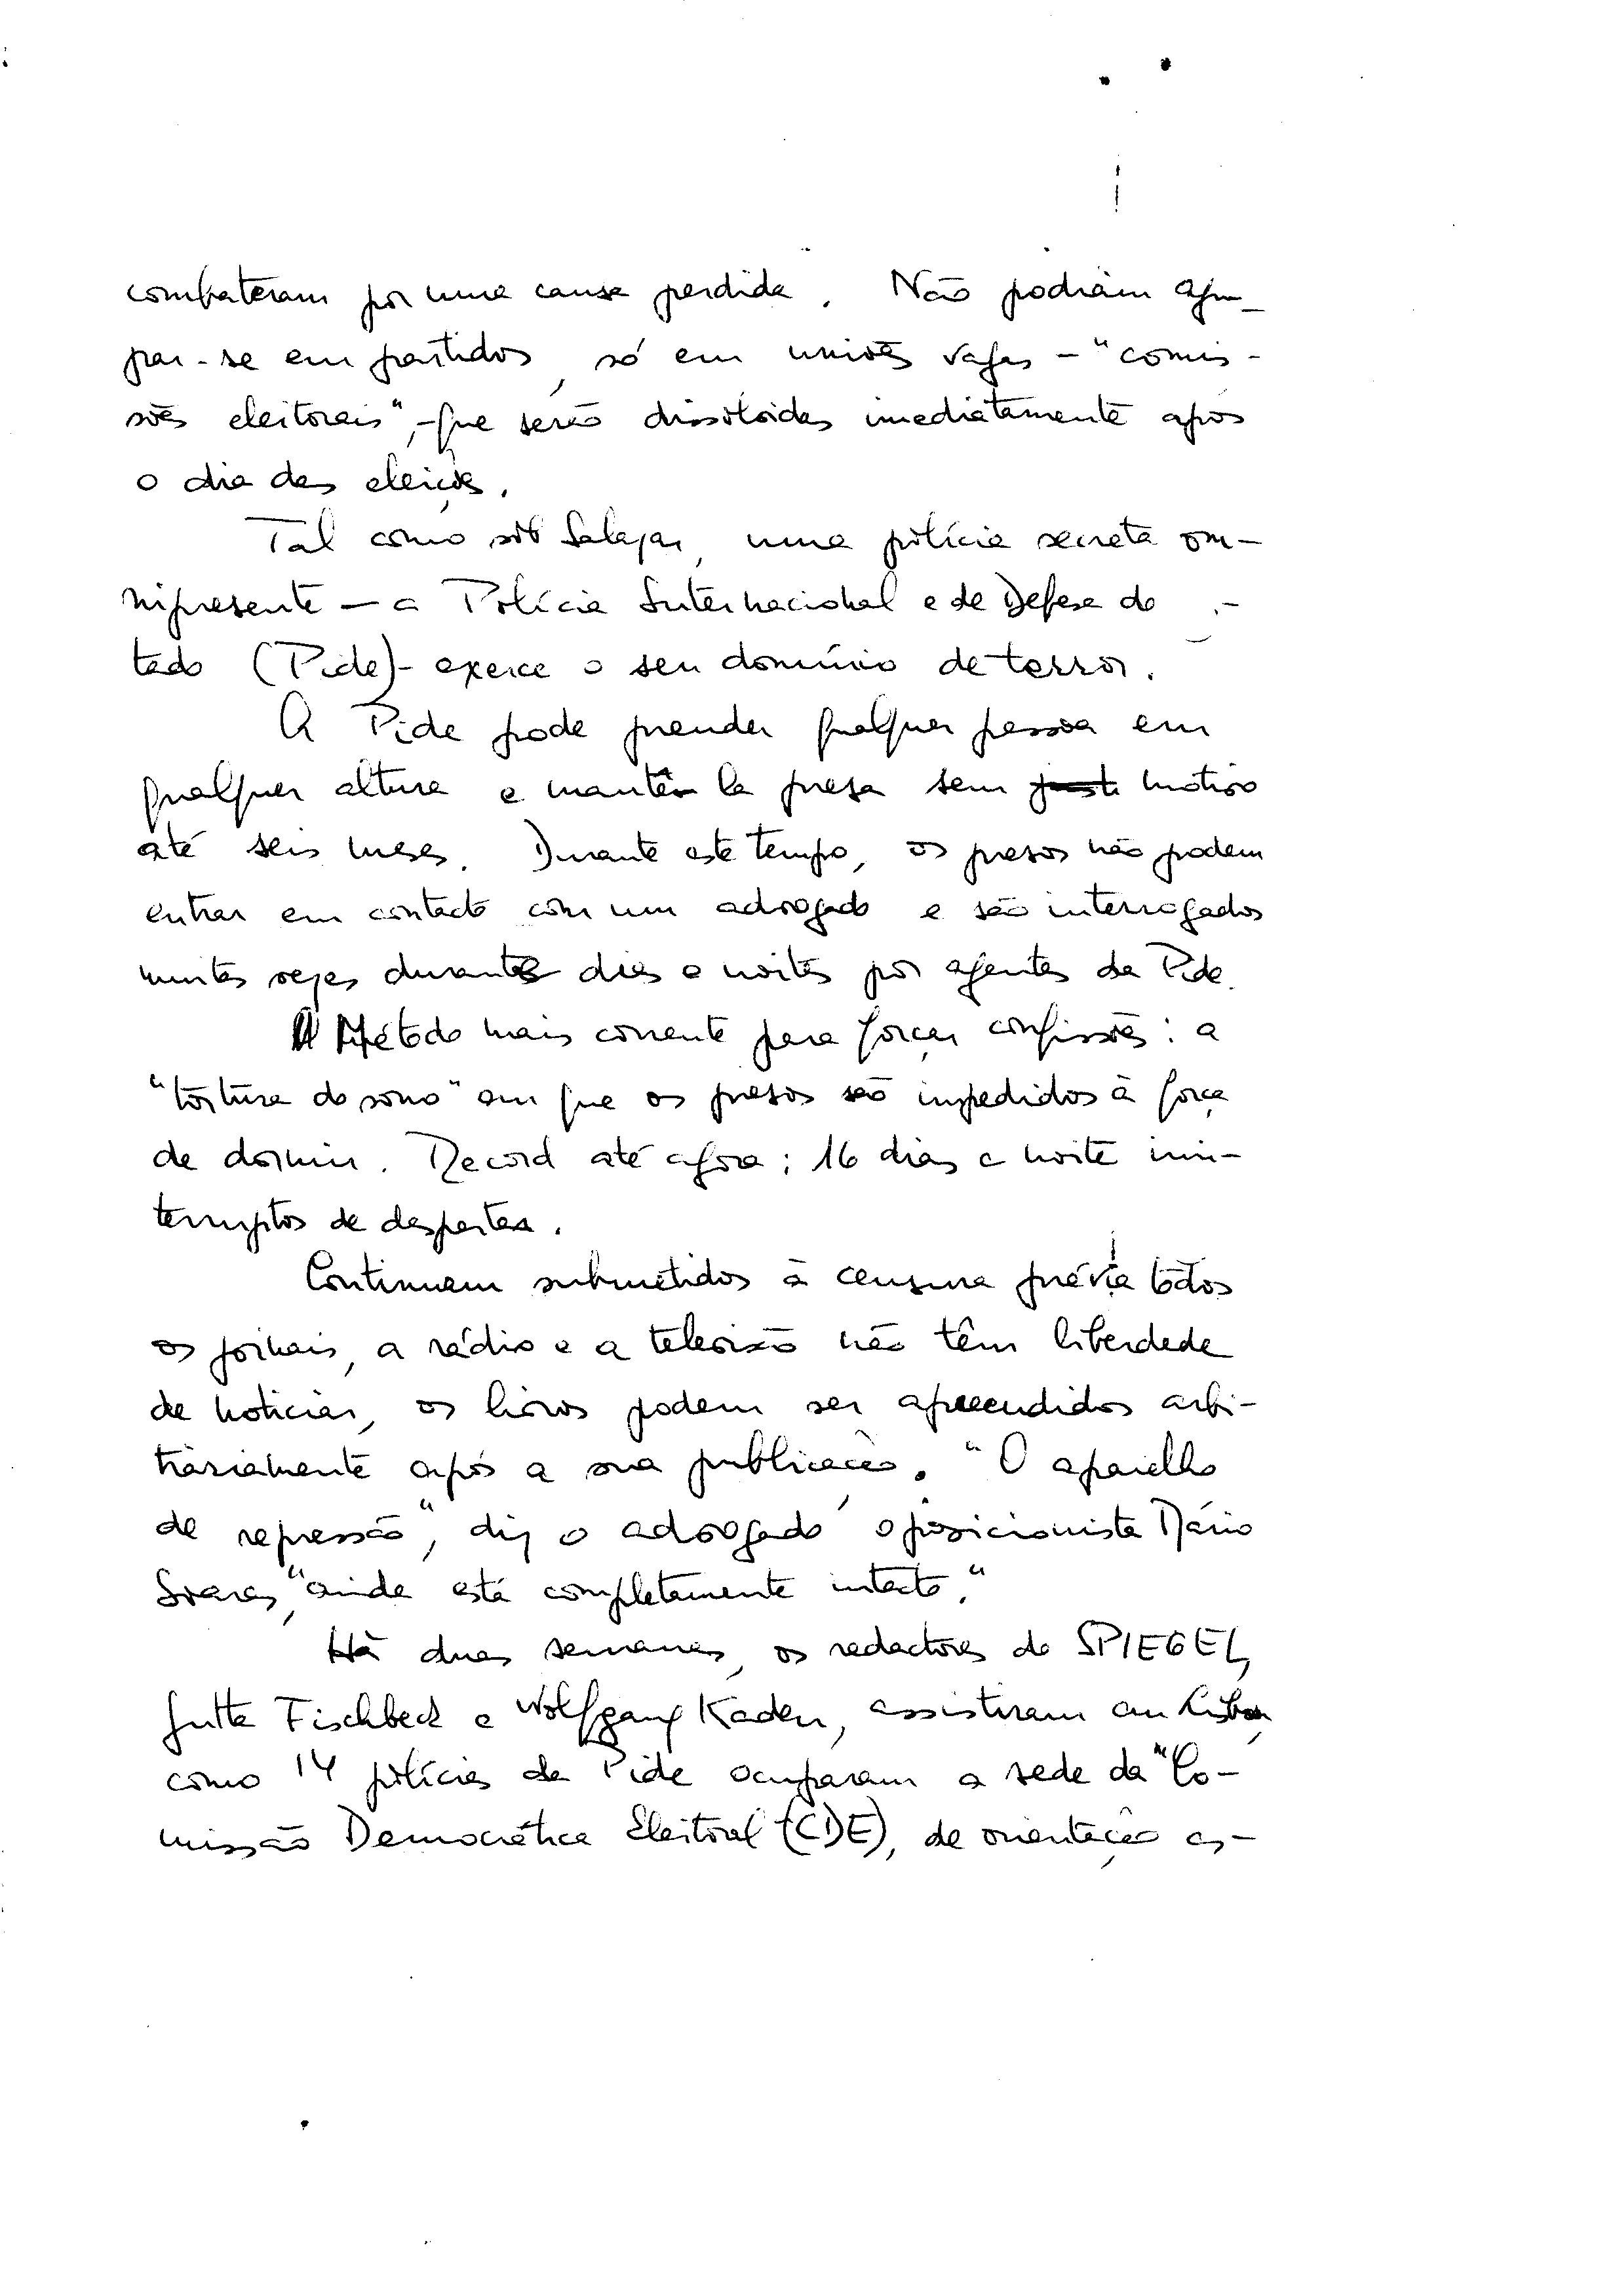 combateram por uma causa perdida. Não podiam agru-
par-se em partidos, só em uniões vagas - "comis-
sões eleitorais", - que serão dissolvidas imediatamente após
o dia das eleições.
Tal como sob Salazar, uma polícia secreta om-
nipresente - a Polícia Internacional e de Defesa do
tado (Pide) - exerce o seu domínio de terror.
A Pide pode prender qualquer pessoa em
qualquer altura e mantê-la presa sem motivo
até seis meses. Durante este tempo, os presos não podem
entrar em contacto com um advogado e são interrogados
muitas vezes durante dias e noites por agentes da Pide.
Método mais corrente para forçar confissões: a
"tortura do sono" em que os presos são impedidos à força
de dormir. Record até agora: 16 dias e noite inin-
terruptos de despertar.
Continuam submetidos à censura prévia todos
os jornais, a rádio e a televisão não têm liberdade
de noticiar, os livros podem ser apreendidos arbi-
tráriamente após a sua publicação. "O aparelho
de repressão", diz o advogado oposicionista Mário
Soares, "ainda está completamente intacto."
Há duas semanas, os redactores do SPIEGEL,
Jutta Fischbeck e Wolfgang Kaden, assistiram em Lisboa,
como 14 polícias da Pide ocuparam a sede da "Co-
missão Democrática Eleitoral (CDE), de orientação es-